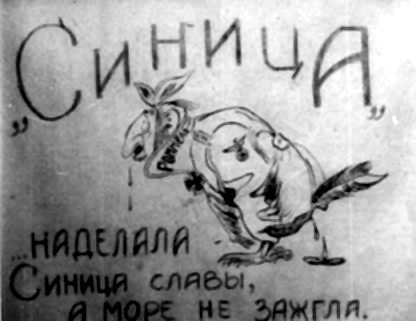 „Синица”
...НАДЕЛАЛА
Синица славы,
а море не зажгла.